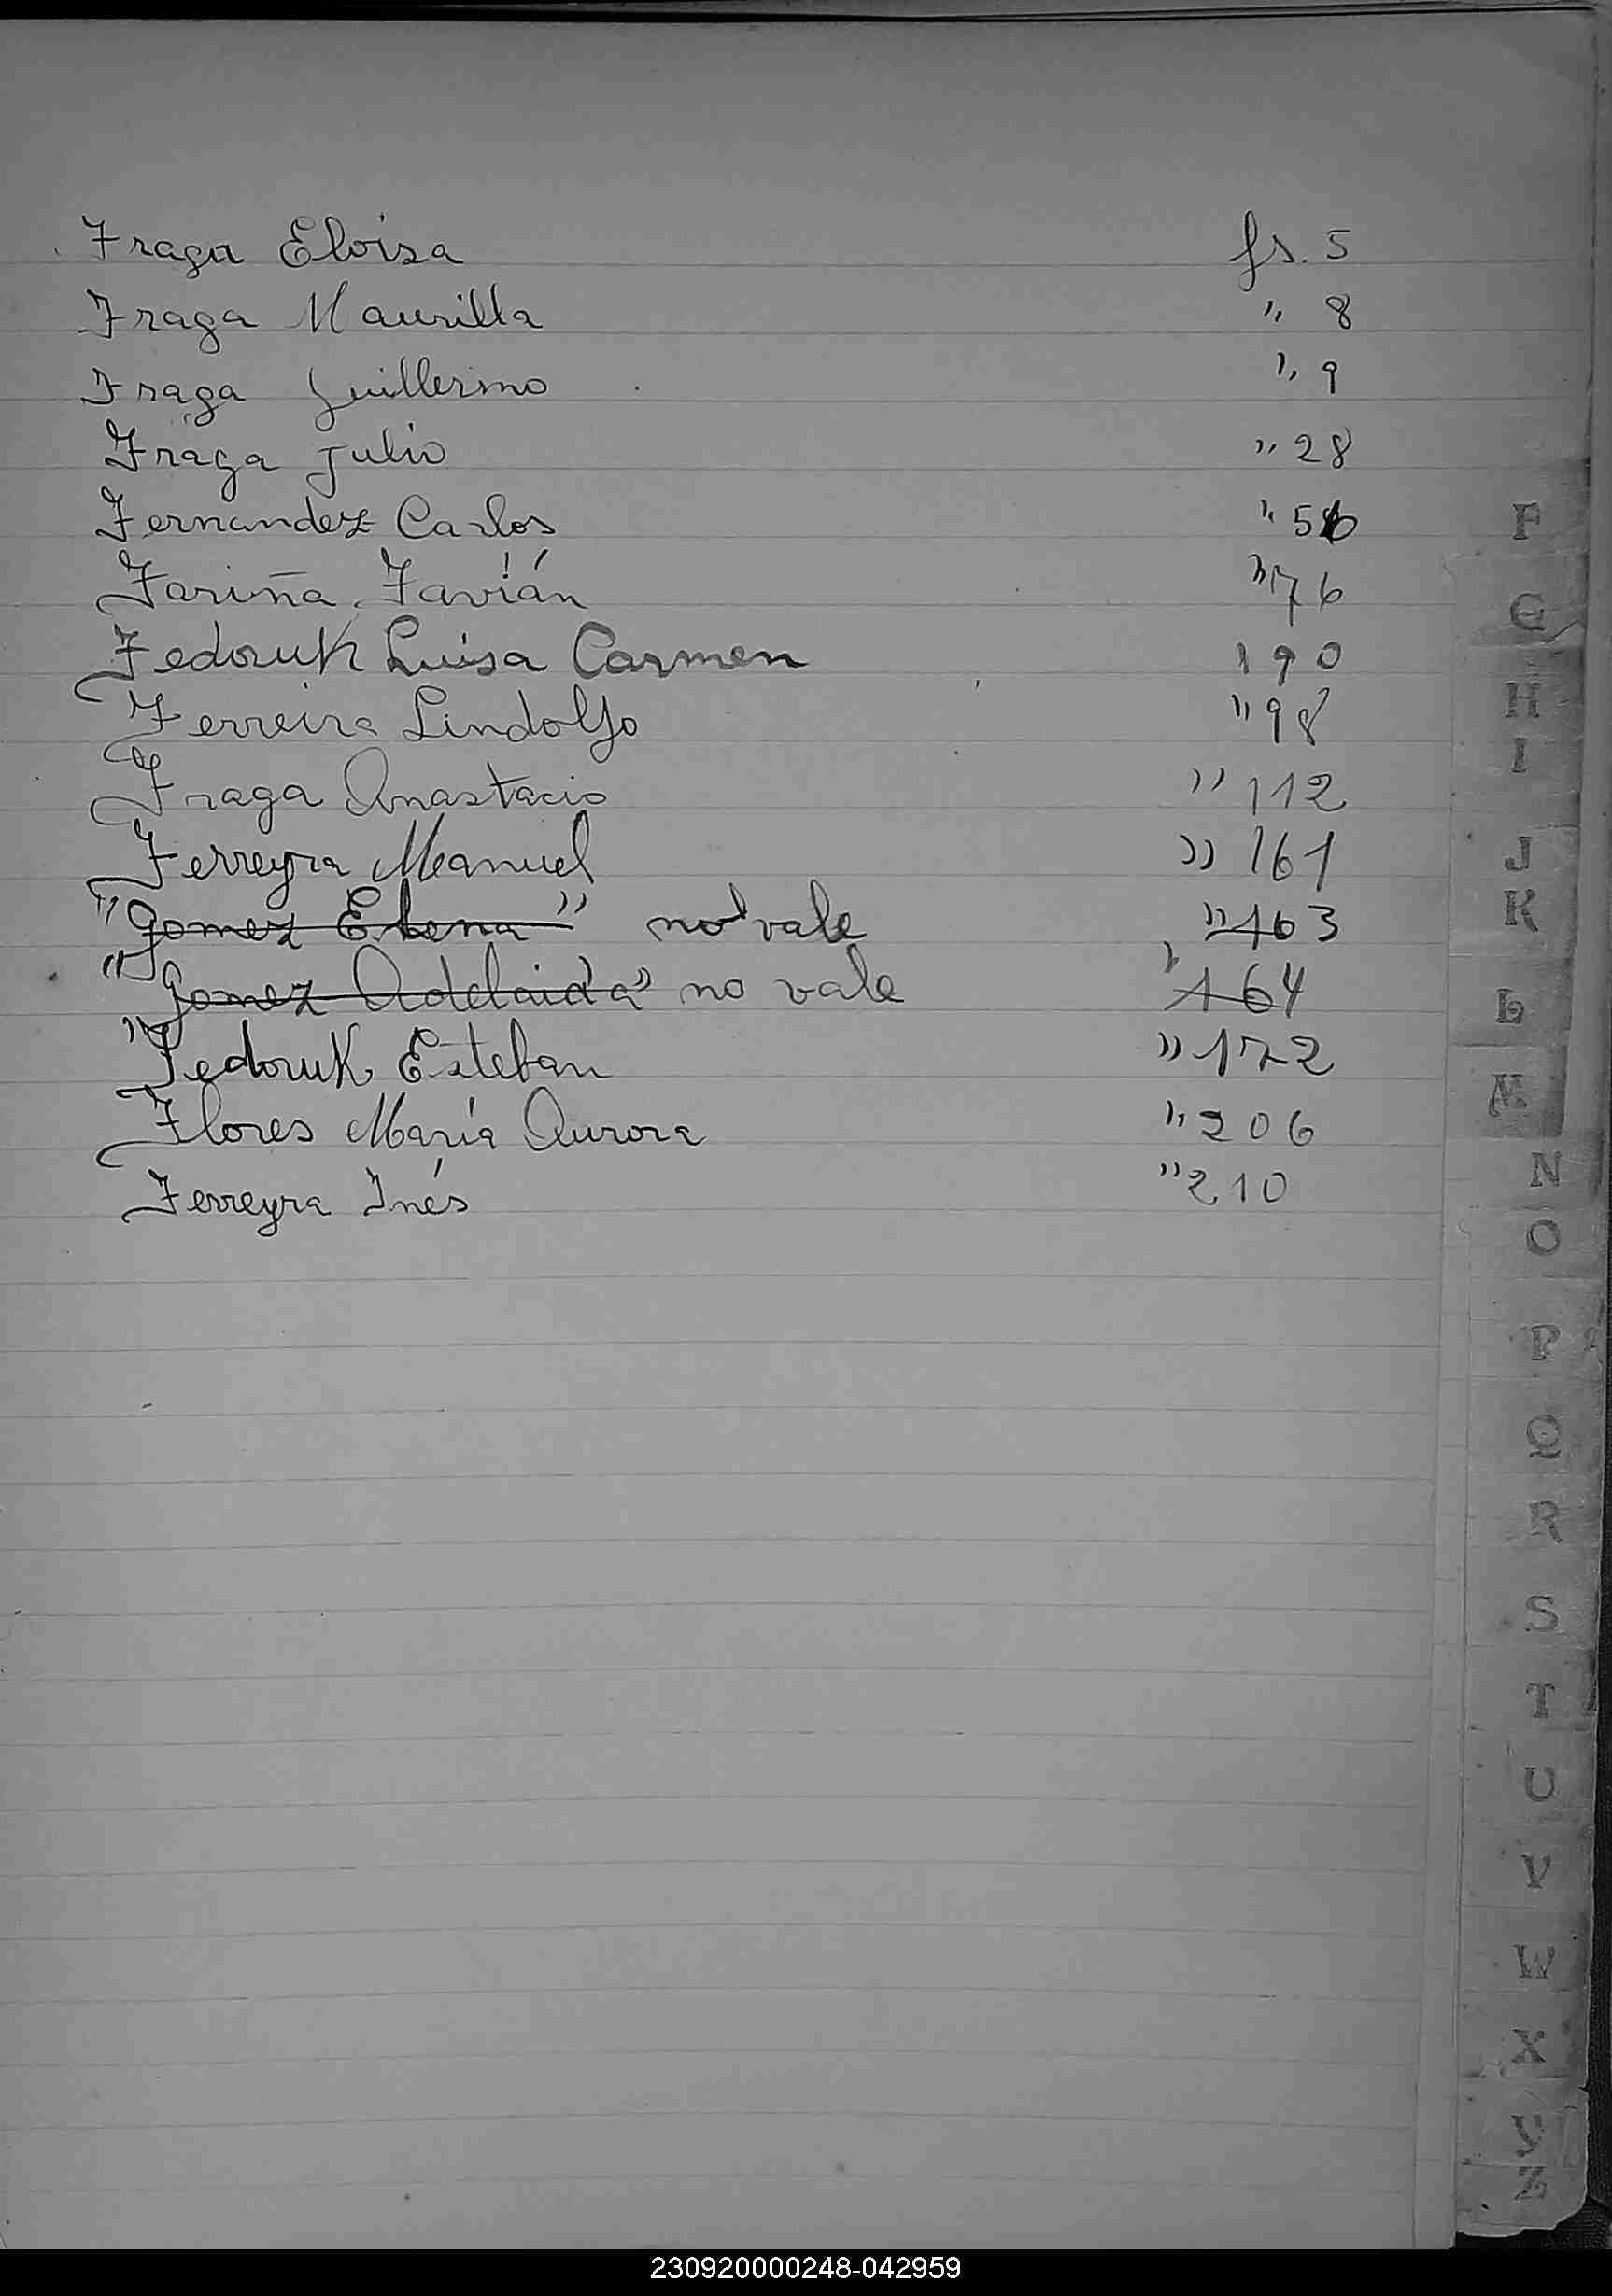 Fraga Eloisa fs. 5
Fraga Maurilla " 8
Fraga Guillermo " 9
Fraga Julio " 28
Fernandez Carlos " 56
Fariña Favián " 76
Fedoruk Luisa Carmen " 90
Ferreira Lindolfo " 98
Fraga Anastacio " 112
Ferreyra Manuel " 161
"Gomez Elena" no vale " 163
"Gomez Adelaida" no vale " 164
Fedoruk Esteban " 172
Flores María Aurora " 206
Ferreyra Inés " 210
F
G
H
I
J
K
L
M
N
O
P
Q
R
S
T
U
V
W
X
Y
Z
230920000248-042959